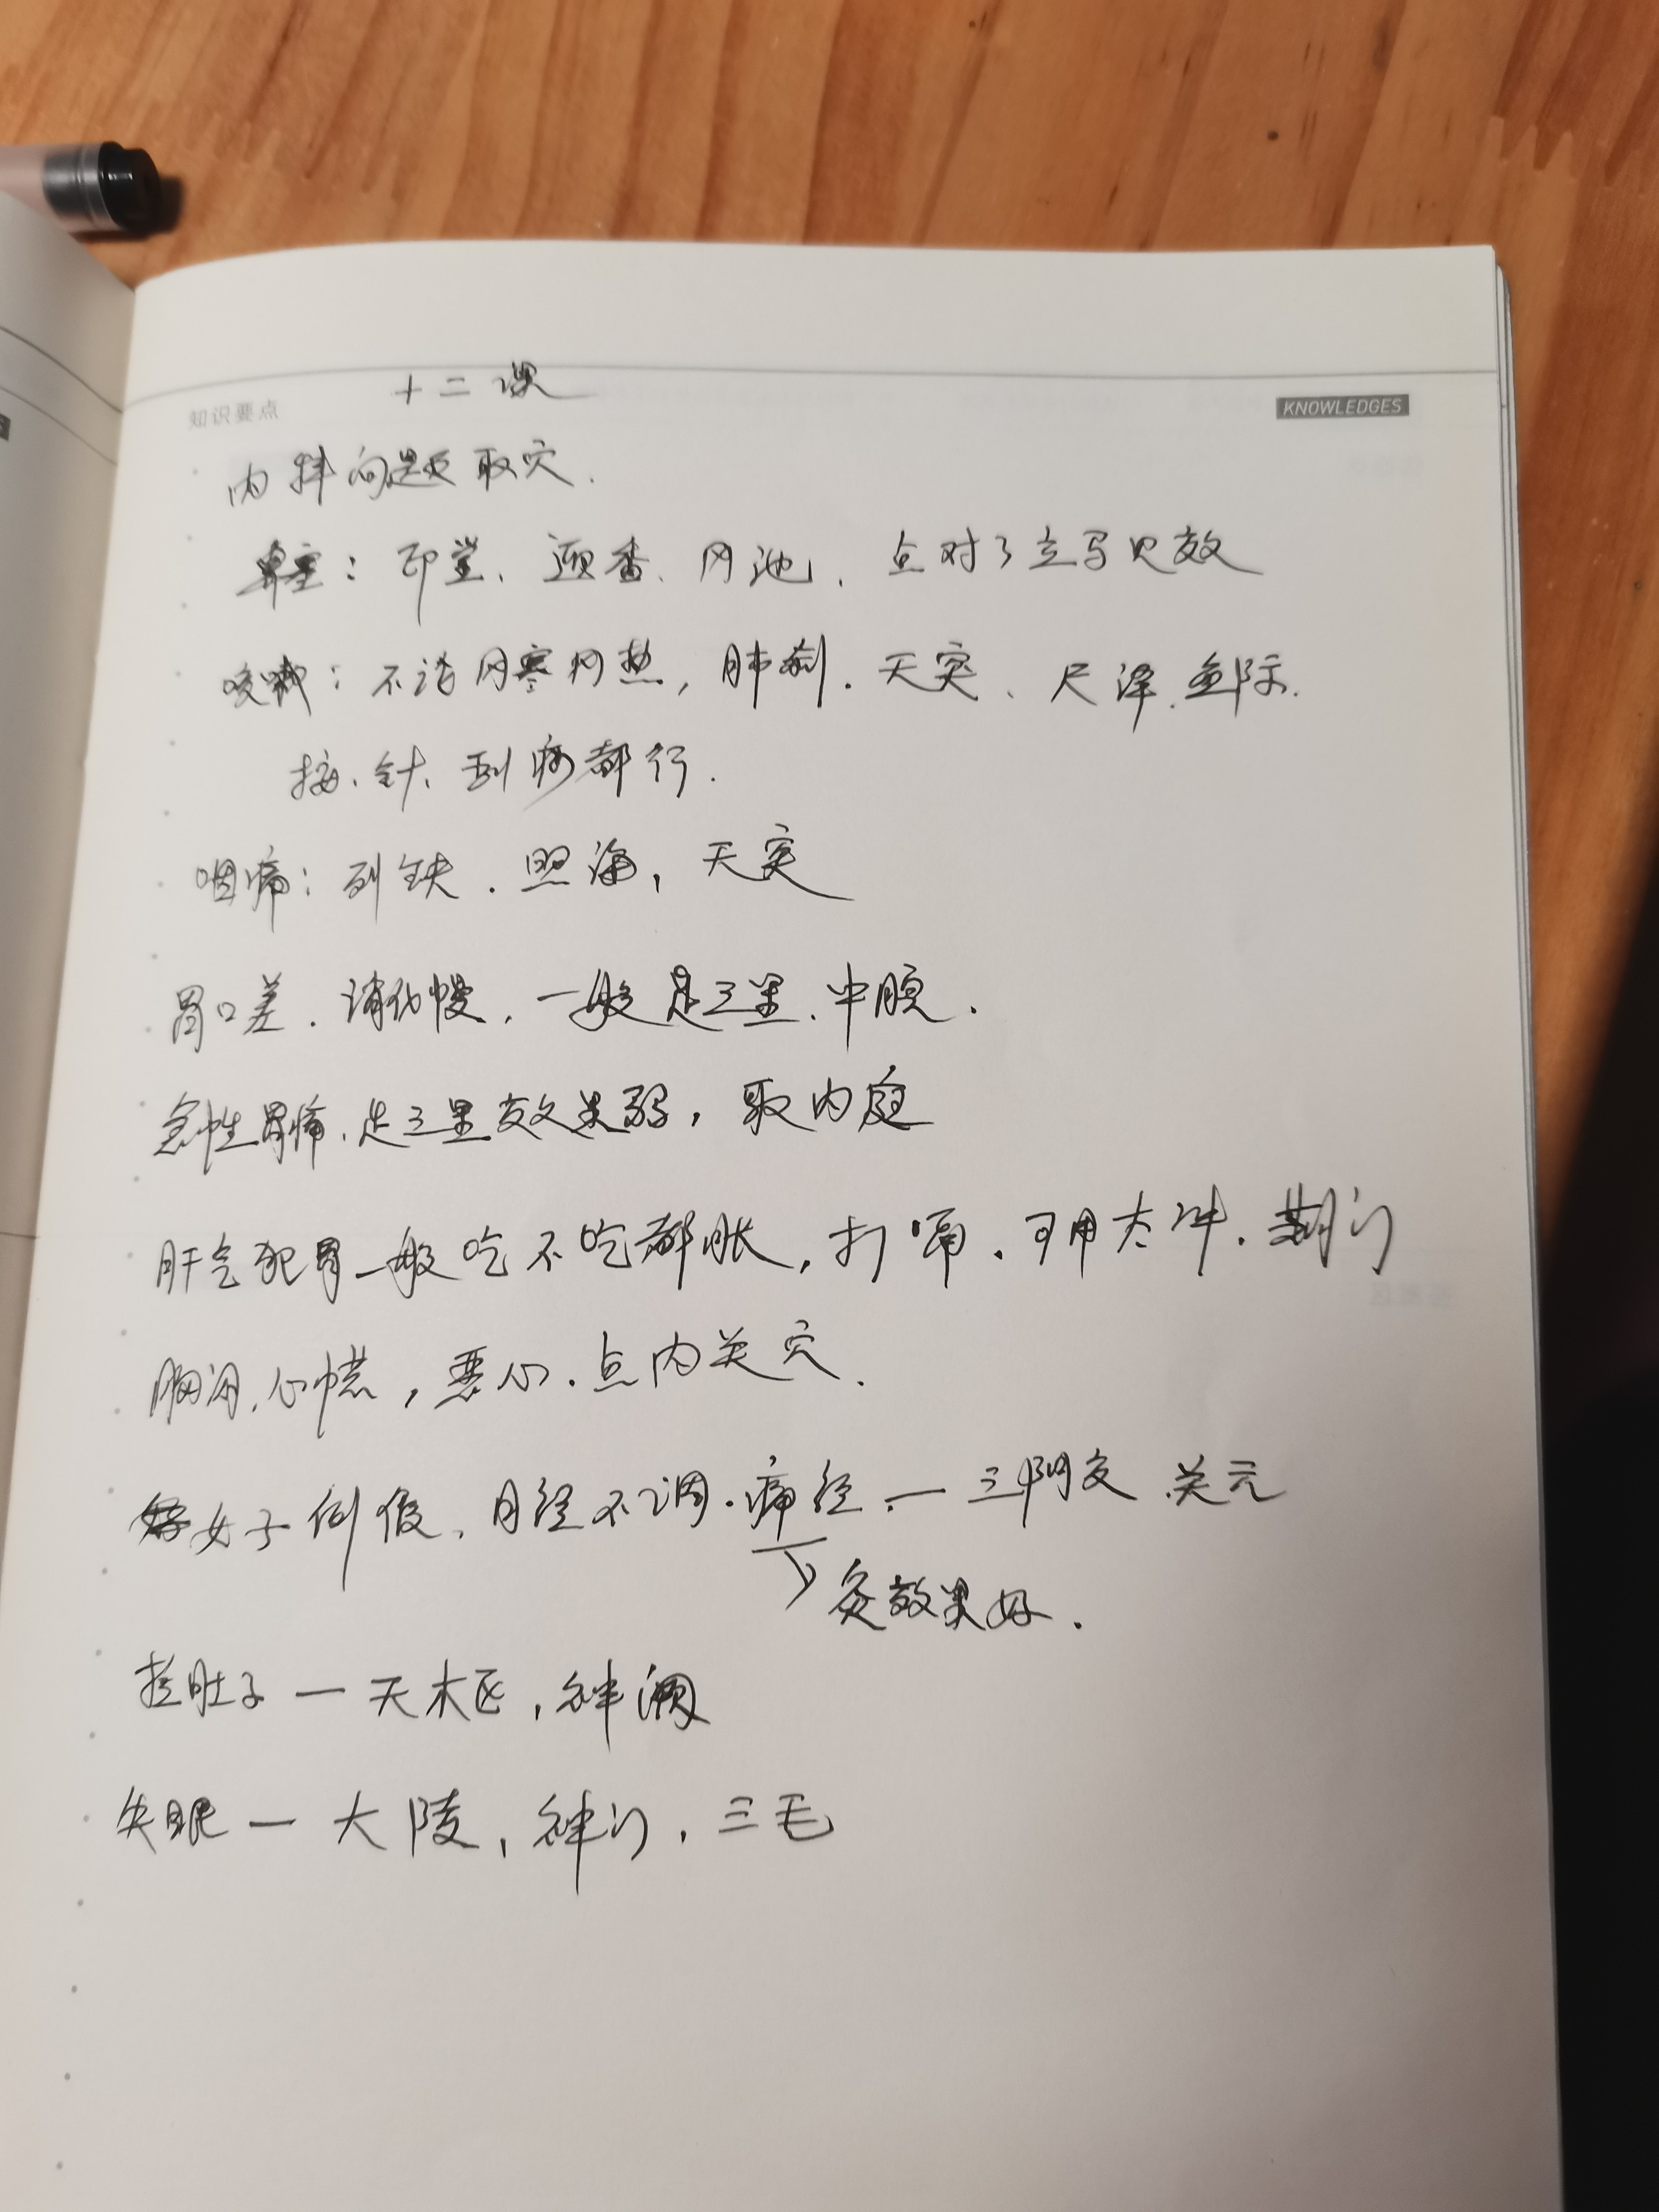 十二课
知识要点
KNOWLEDGES
内科问题取穴.
鼻塞：印堂、迎香、风池、点对了立马见效
咳嗽：不论风寒风热，肺俞.天突、尺泽.鱼际.
按、针、刮痧都行.
咽痛：列缺.照海，天突
胃口差.消化慢，一般足三里、中脘.
急性胃痛.足三里效果弱，取内庭
肝气犯胃一般吃不吃都胀，打嗝.可用太冲.期门
胸闷.心慌，恶心.点内关穴.
女子例假、月经不调.痛经.一三阴交.关元
灸效果好.
拉肚子一天枢，神阙
失眠一大陵，神门，三毛